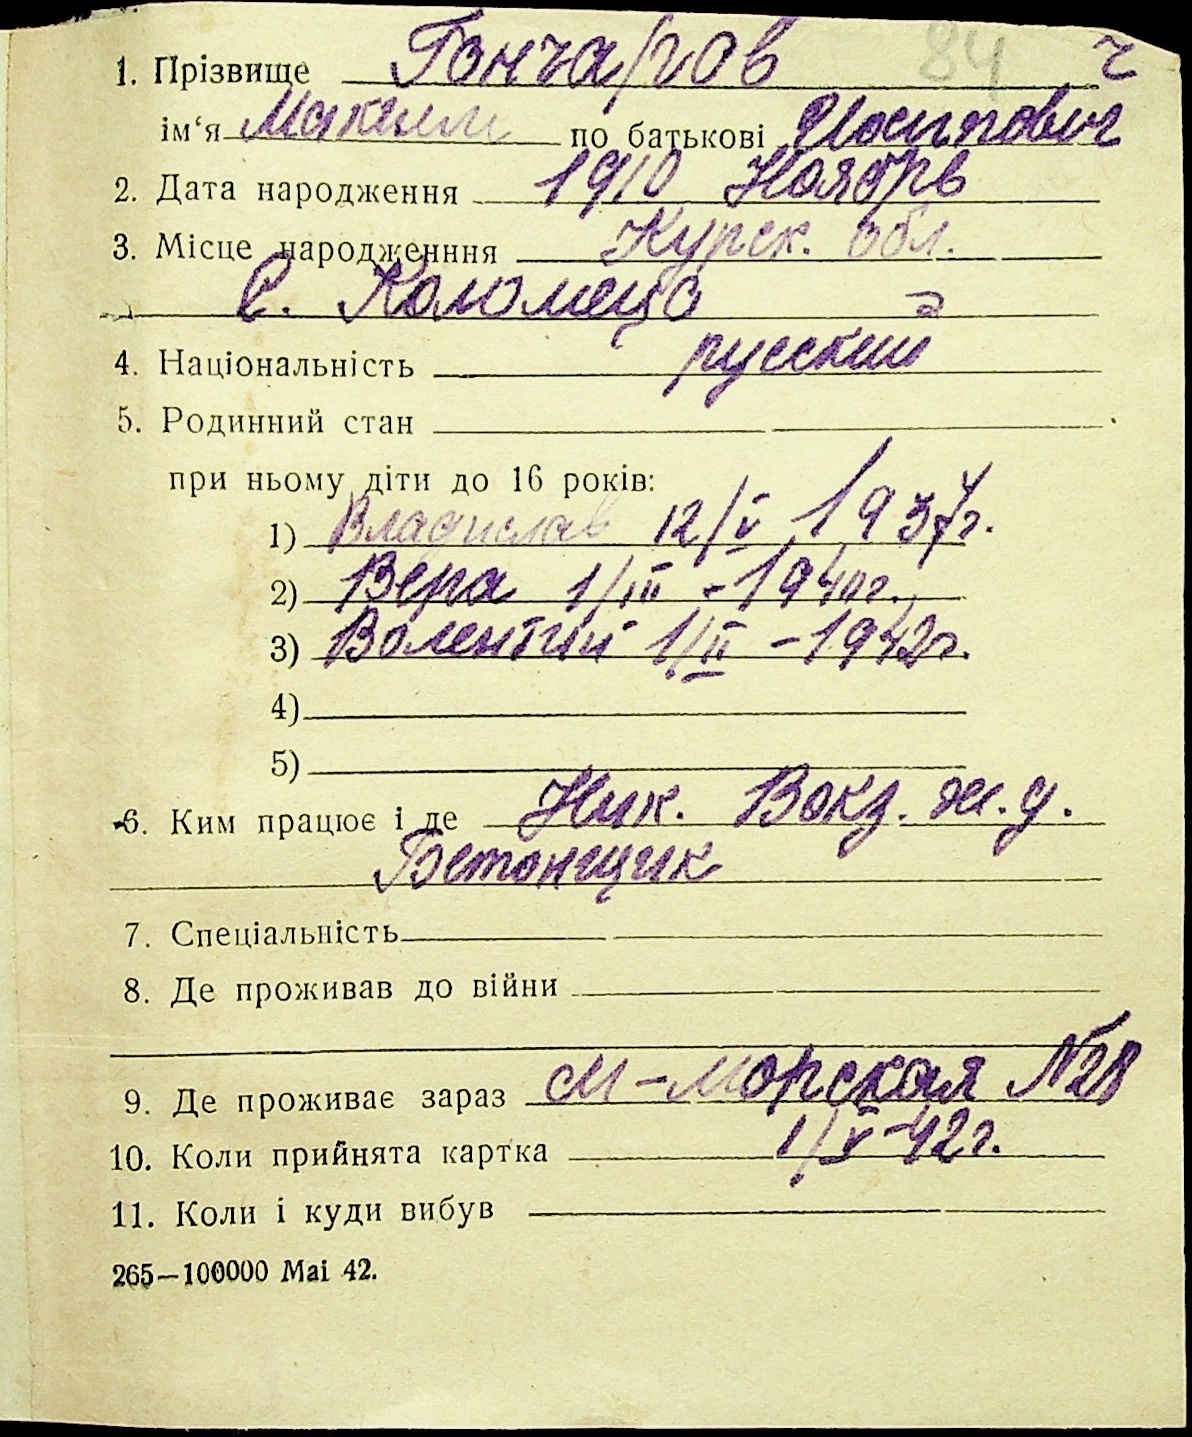 84 ч
1. Прізвище Гончаров
ім‘я Максим по батькові Иосипович
2. Дата народження 1910 Ноябрь
3. Місце народженння Курск. обл.
с. Коломецо
4. Національність русский
5. Родинний стан
при ньому діти до 16 років:
1) Владислав 12/V 1937г.
2) Вера 1/III - 1940г.
3) Валентин 1/II - 1942г.
4)
5)
6. Ким працює і де Ник. Вокз. ж.д.
Бетонщик
7. Спеціальність
8. Де проживав до війни
9. Де проживає зараз М-Морская №28
10. Коли прийнята картка 1/V-42г.
11. Коли і куди вибув
265—100000 Маі 42.